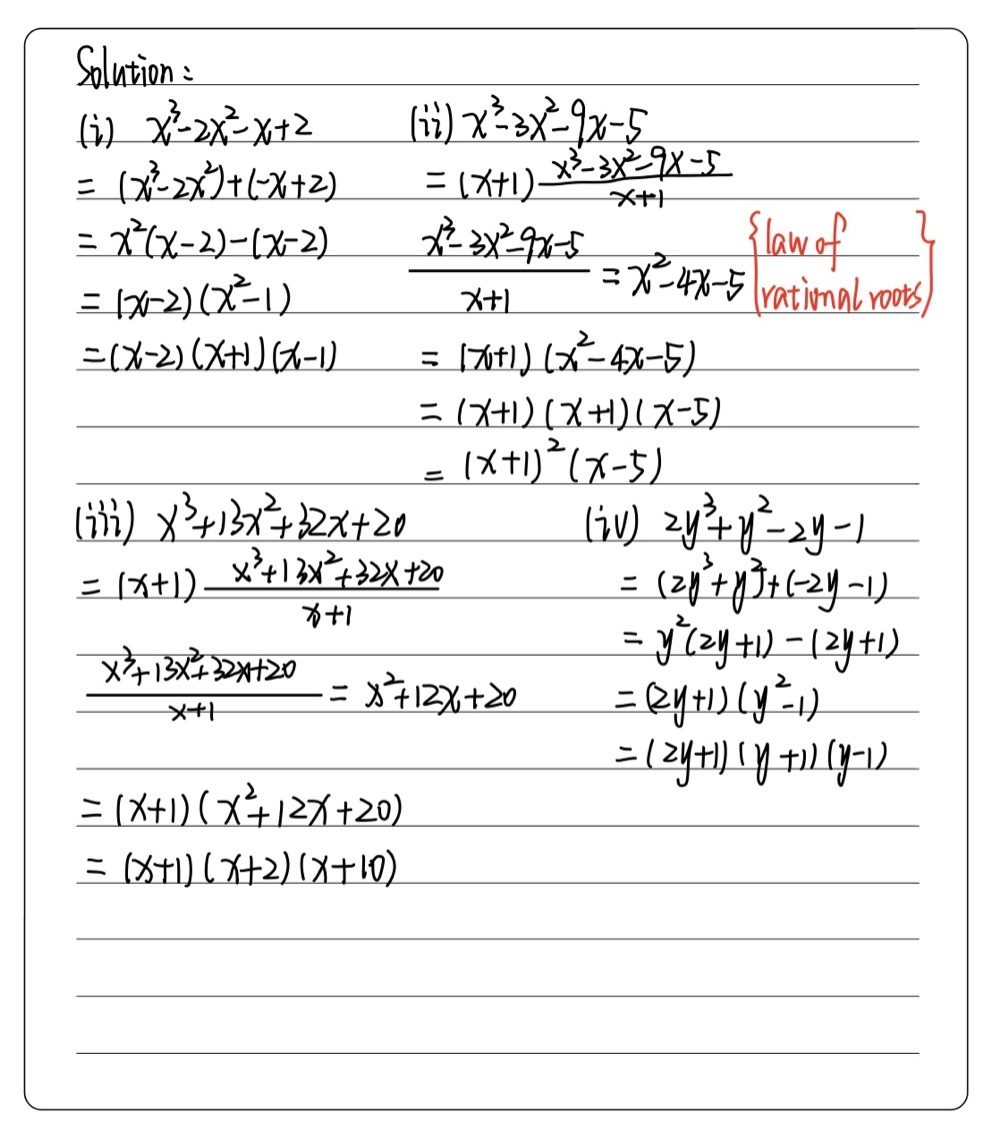 Solution:
(i) x³-2x²-x+2
= (x³-2x²)+(-x+2)
= x²(x-2)-(x-2)
= (x-2)(x²-1)
=(x-2)(x+1)(x-1)
(ii) x³-3x²-9x-5
= (x+1) \frac{x³-3x²-9x-5}{x+1}
\frac{x³-3x²-9x-5}{x+1} = x²-4x-5
{law of
rational roots}
= (x+1)(x²-4x-5)
= (x+1)(x+1)(x-5)
= (x+1)²(x-5)
(iii) x³+13x²+32x+20
= (x+1) \frac{x³+13x²+32x+20}{x+1}
\frac{x³+13x²+32x+20}{x+1} = x²+12x+20
= (x+1)(x²+12x+20)
= (x+1)(x+2)(x+10)
(iv) 2y³+y²-2y-1
= (2y³+y²)+(-2y-1)
= y²(2y+1)-(2y+1)
= (2y+1)(y²-1)
= (2y+1)(y+1)(y-1)